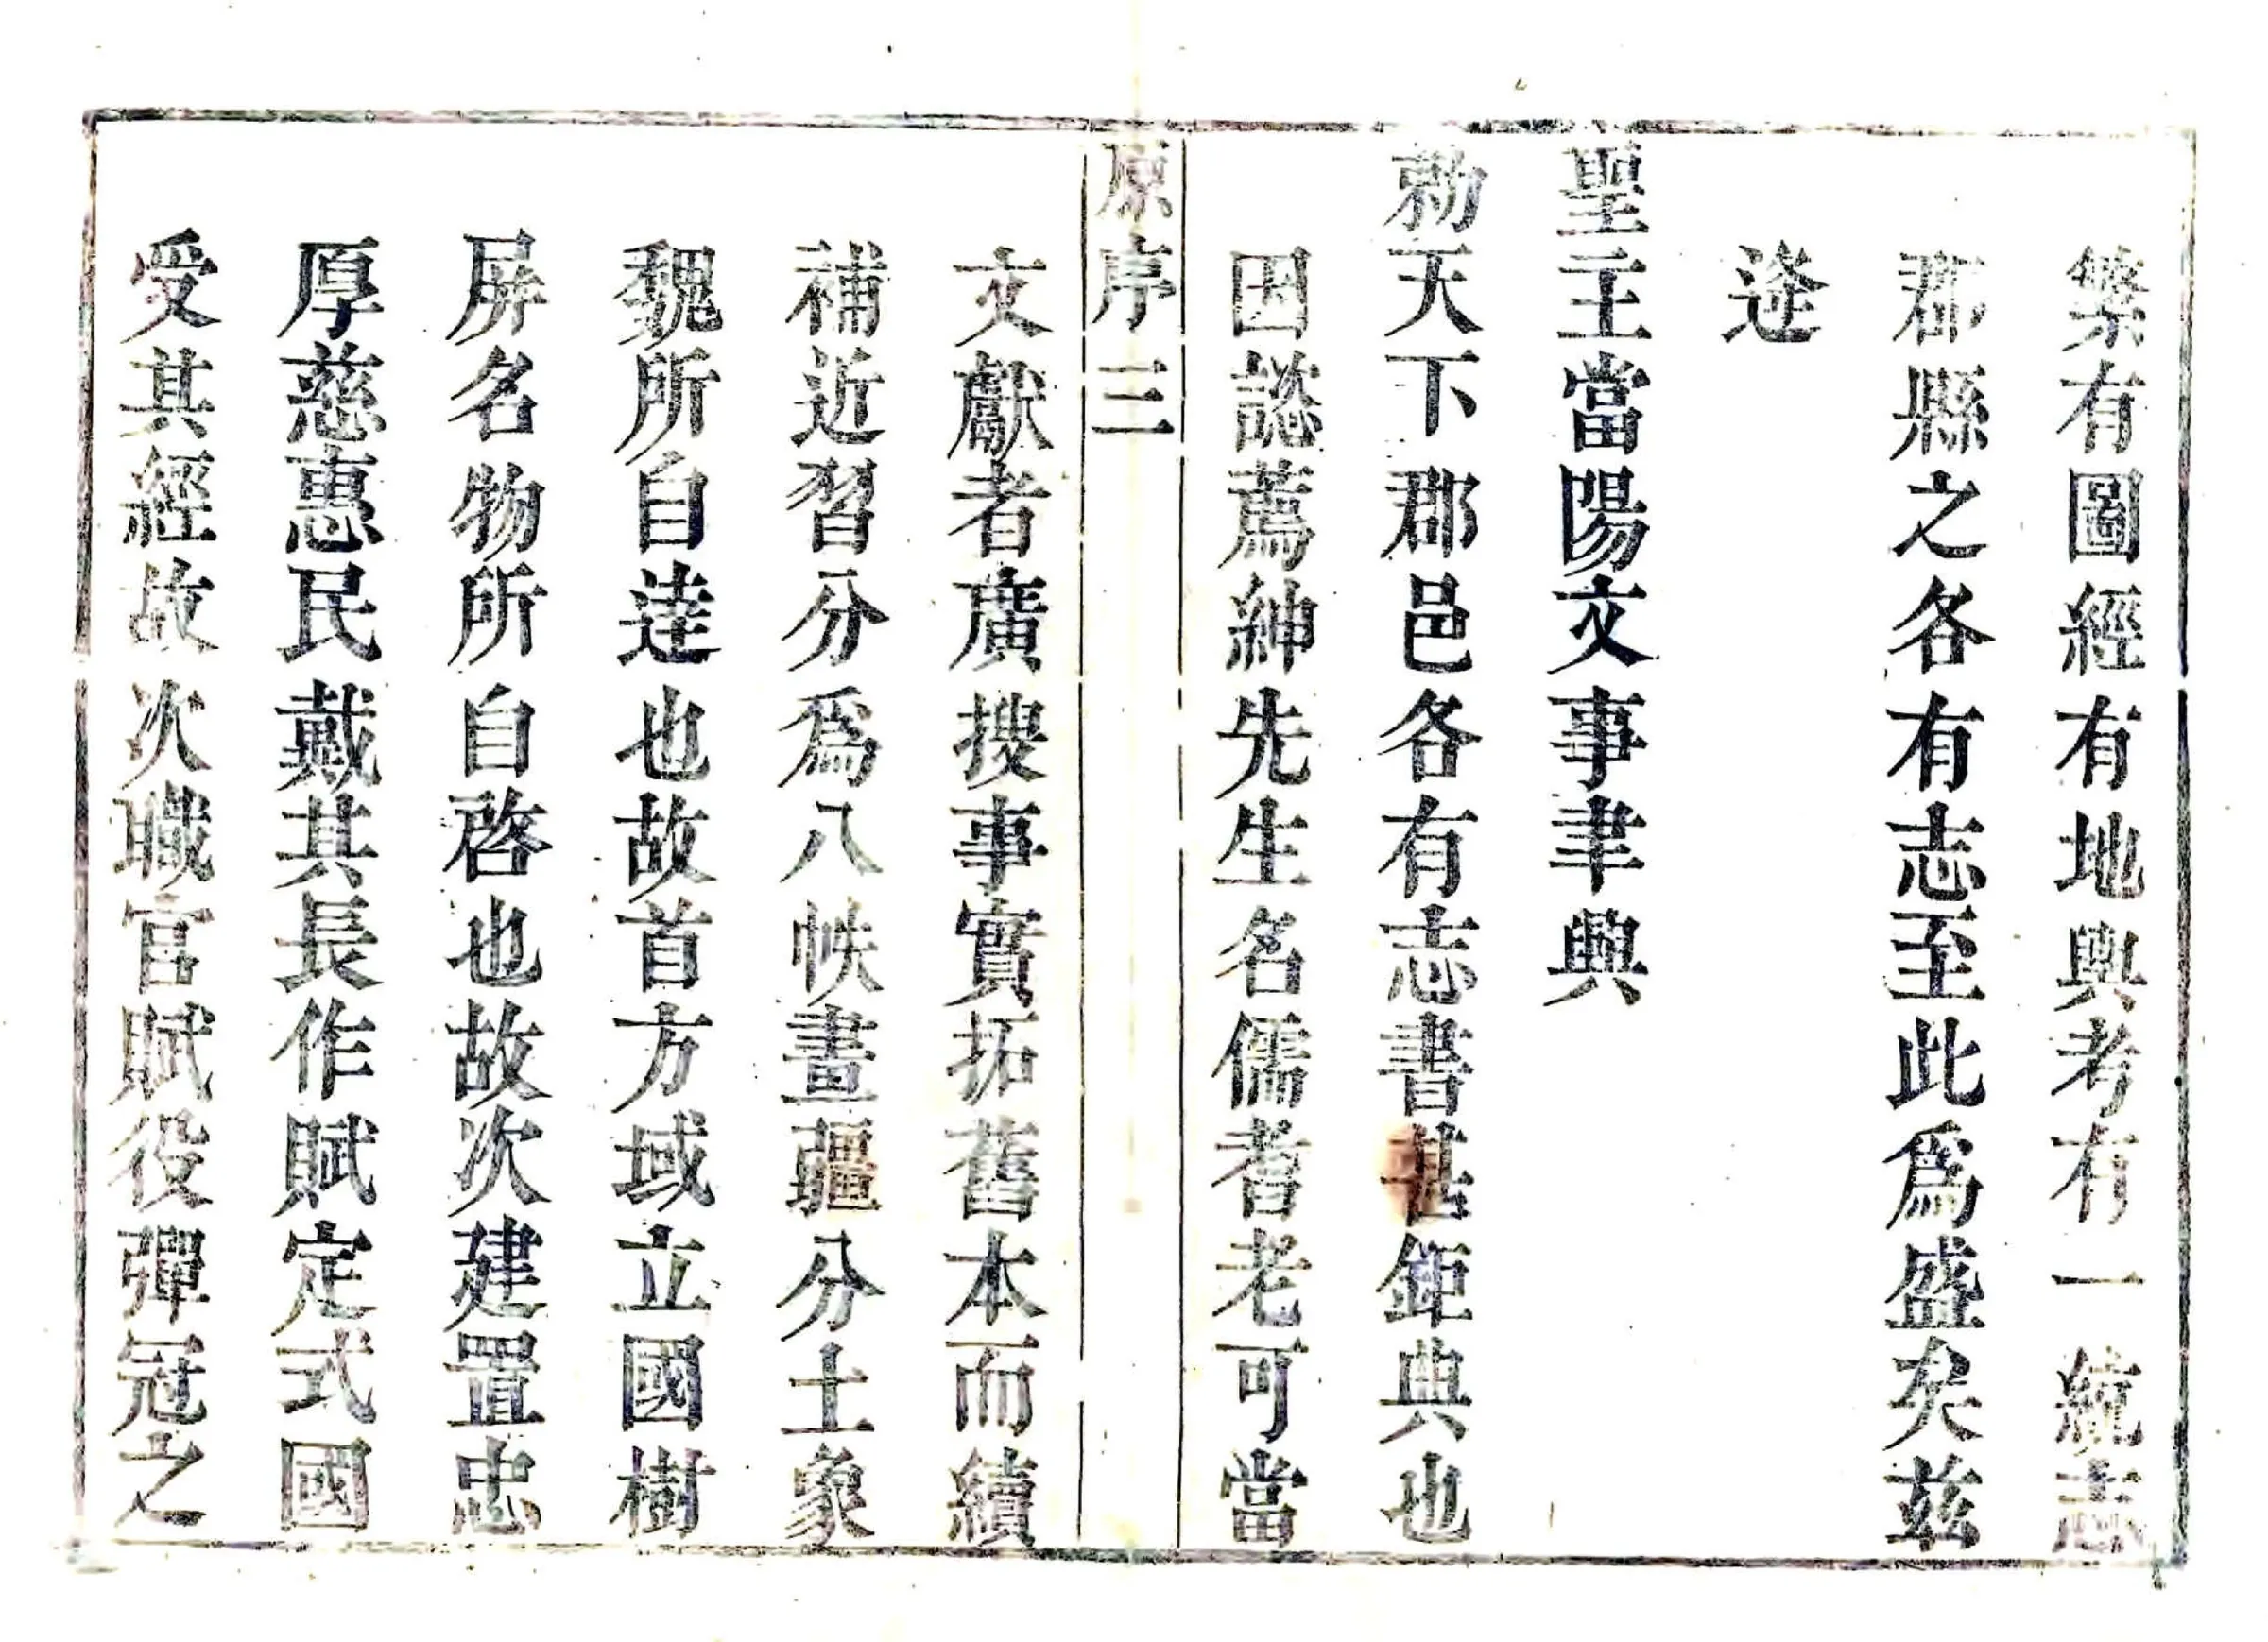 繁有圖經有地輿考有一統志
郡縣之各有志至此爲盛矣茲
逢
聖主當陽文事聿興
勑天下郡邑各有志書甚鉅典也
因諮薦紳先生名儒耆老可當
原序 三
文獻者廣搜事實拓舊本而續
補近習分爲八帙畫疆分土象
魏所自逹也故首方域立國樹
屏名物所自啓也故次建置忠
厚慈惠民戴其長作賦定式國
受其經故次職官賦役彈冠之